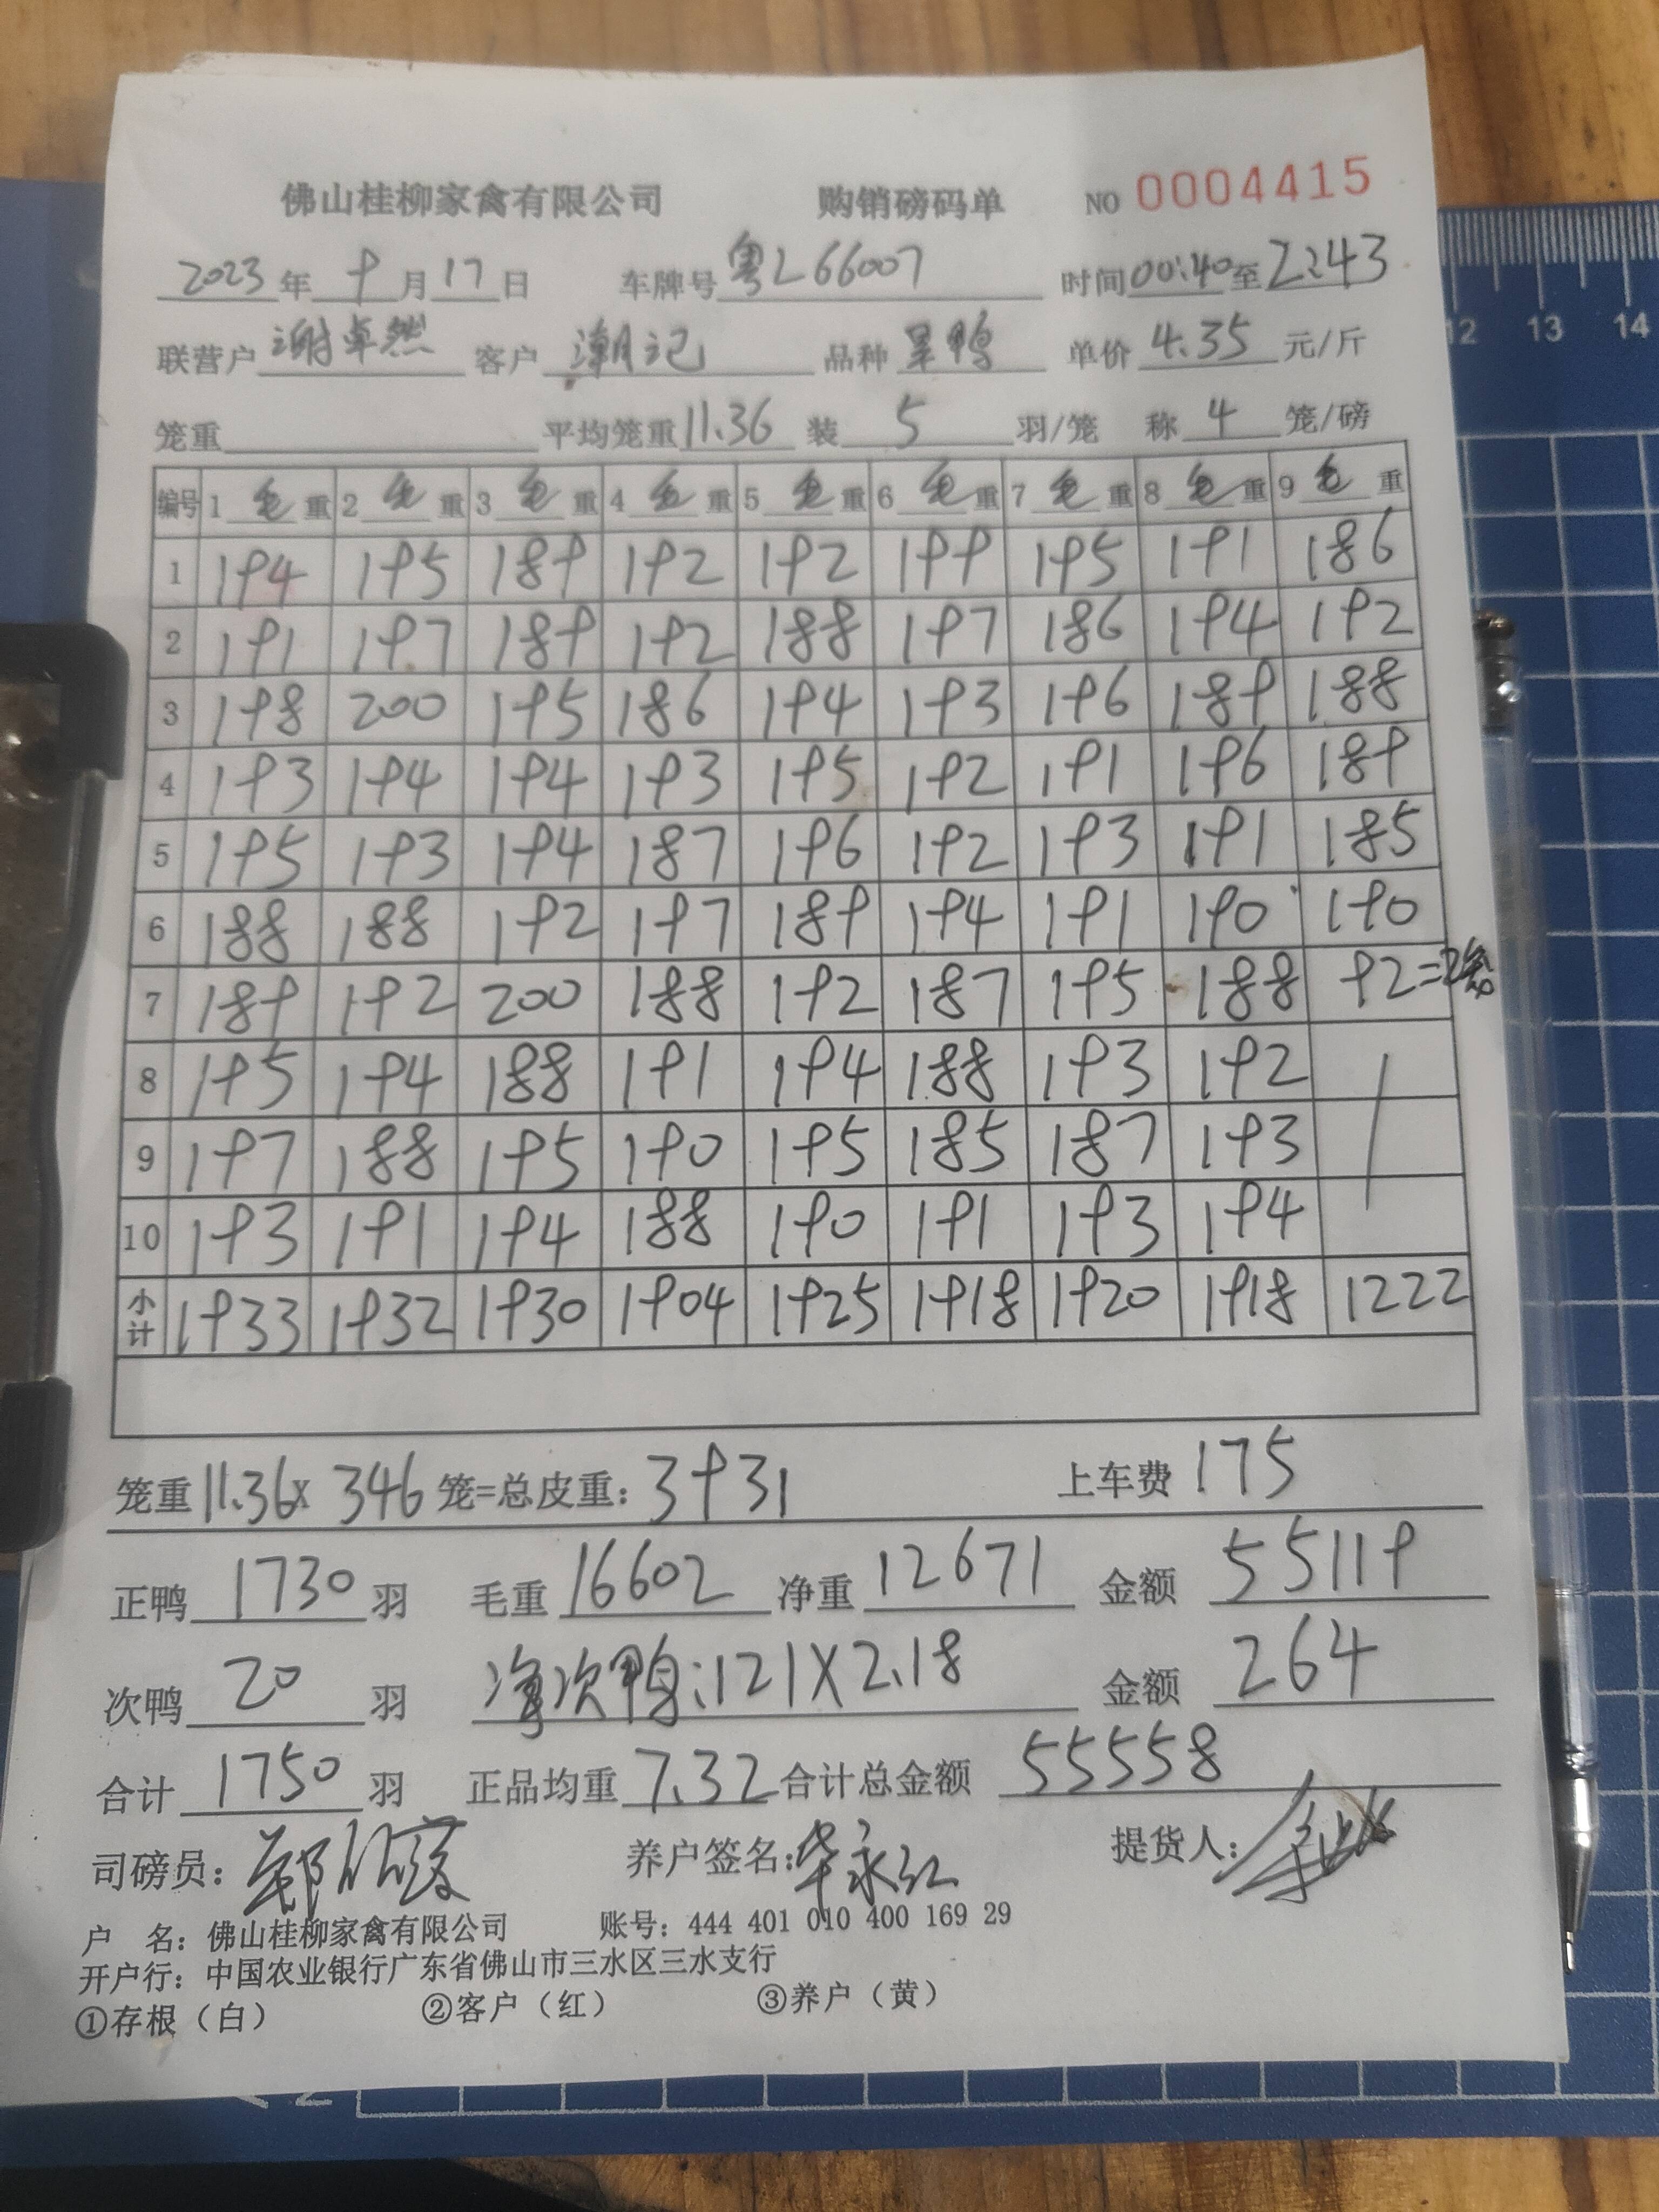 佛山桂柳家禽有限公司 购销磅码单 NO 0004415
2023年9月17日 车牌号粤L66007 时间00:40至2:43
联营户谢卓然 客户潮记 品种 单价4.35元/斤
笼重 平均笼重11.36 装5羽/笼 称4笼/磅
编号 1毛重 2毛重 3毛重 4毛重 5毛重 6毛重 7毛重 8毛重 9毛重
1 194 195 189 192 192 199 195 191 186
2 191 197 189 192 188 197 186 194 192
3 198 200 195 186 194 193 196 189 188
4 193 194 194 193 195 192 191 196 189
5 195 193 194 187 196 192 193 191 185
6 188 188 192 197 189 194 191 190 190
7 189 192 200 188 192 187 195 188 92=2笼
8 195 194 188 191 194 188 193 192
9 197 188 195 190 195 185 187 193
10 193 191 194 188 190 191 193 194
小计 1933 1932 1930 1904 1925 1918 1920 1918 1222
笼重11.36X 346笼=总皮重:3931 上车费175
正鸭1730羽 毛重16602 净重12671 金额55119
次鸭20羽 净次鸭:121X2.18 金额264
合计1750羽 正品均重7.32 合计总金额55558
司磅员: 养户签名:华永红 提货人:
户 名:佛山桂柳家禽有限公司 账号:444 401 010 400 169 29
开户行:中国农业银行广东省佛山市三水区三水支行
①存根(白) ②客户(红) ③养户(黄)
12 13 14